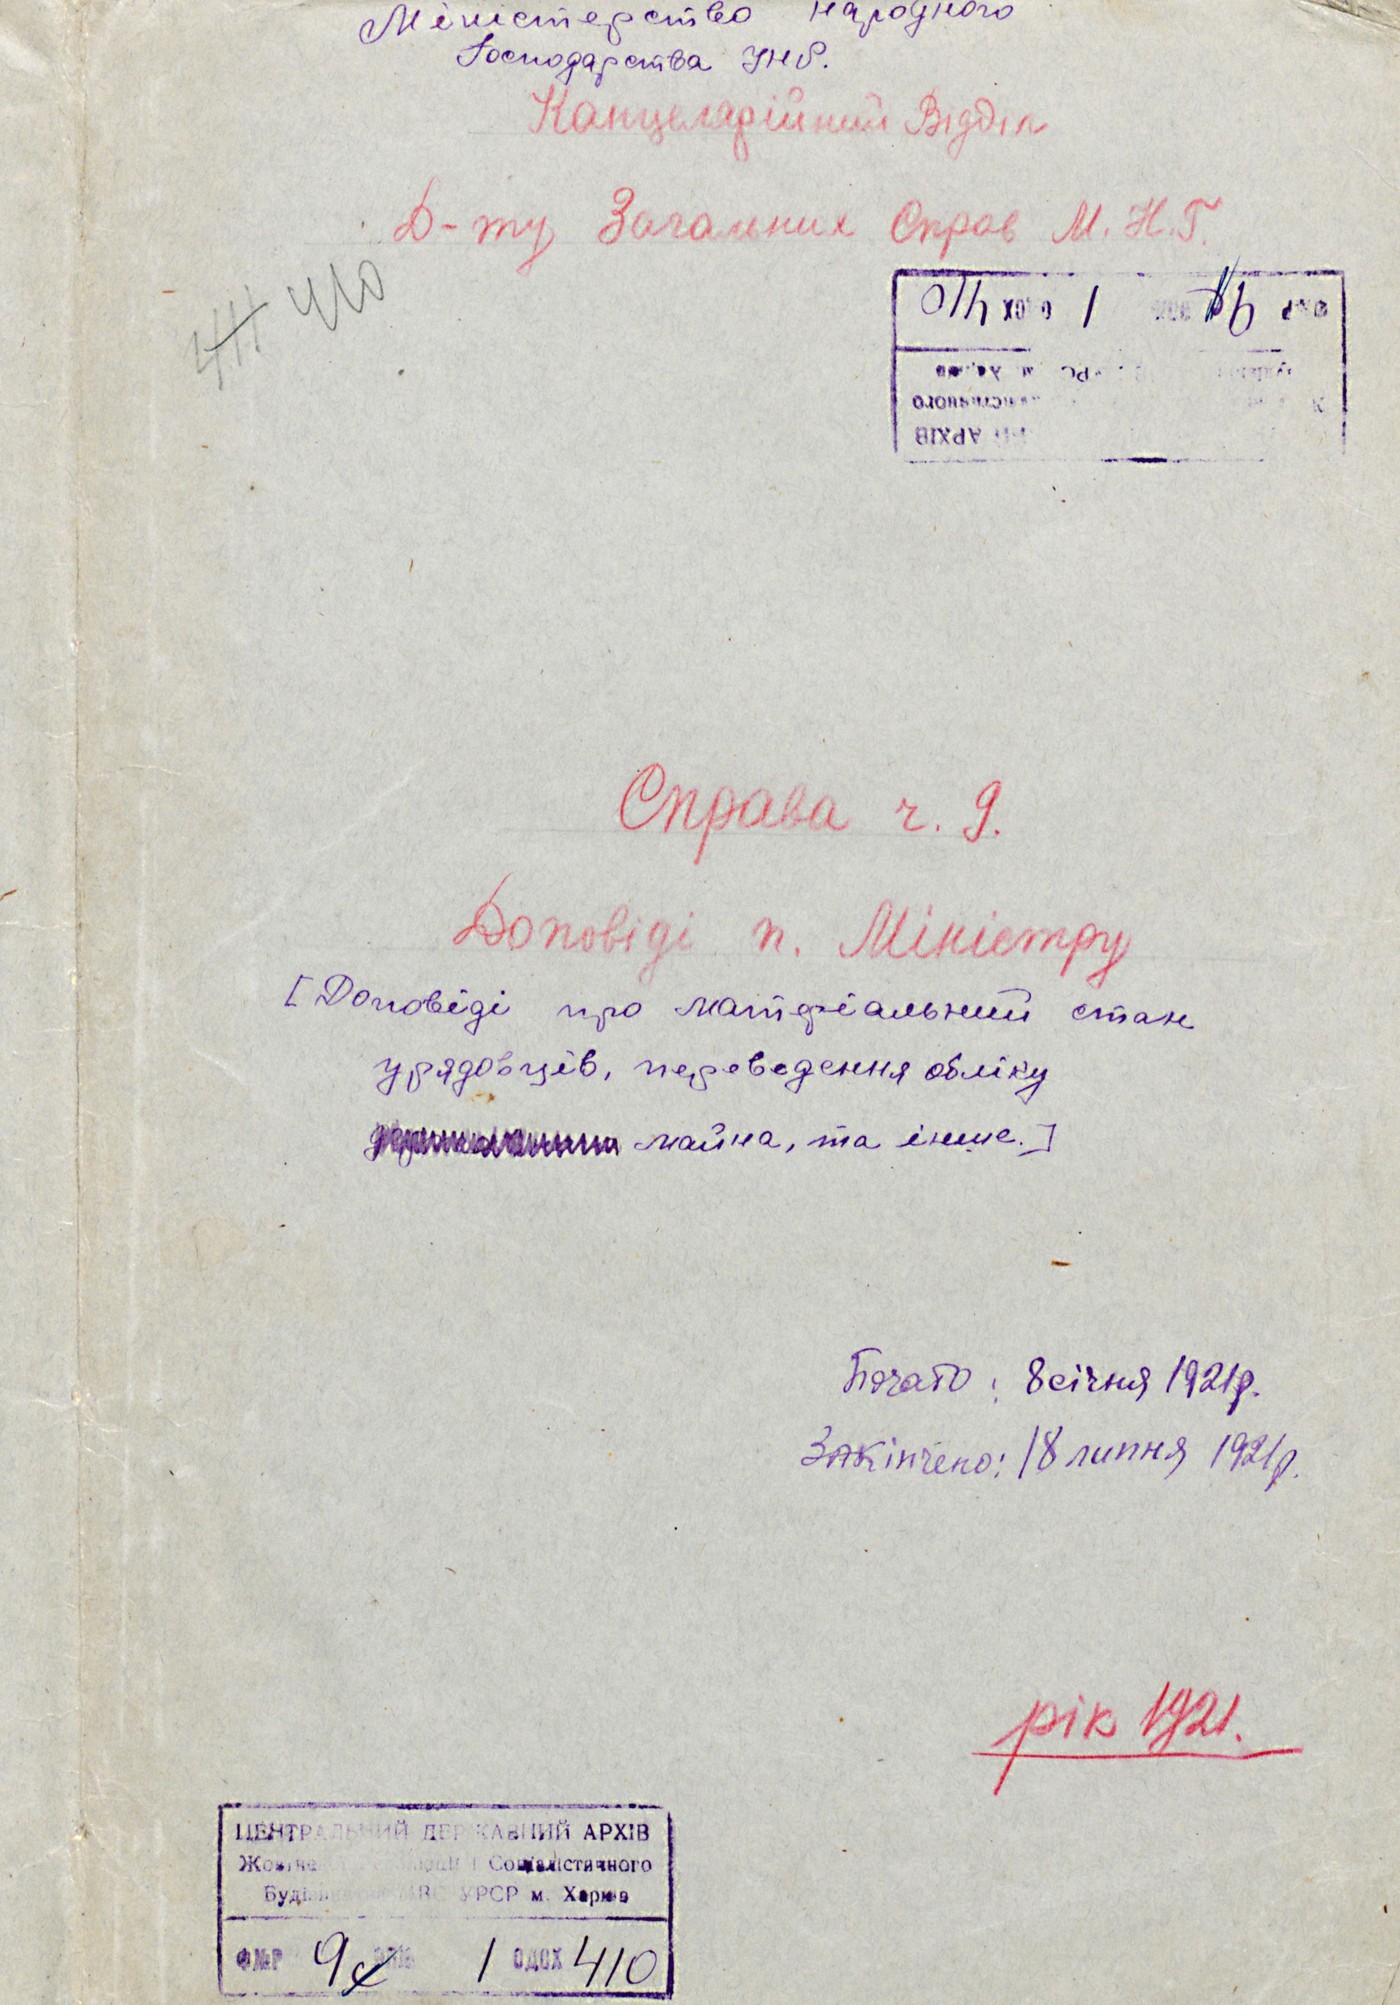 Міністерство народного
Господарства УНР.
Канцелярійний Відділ
Д-ту Загальних Справ М.Н.Г.
411 410
ФМР 9 1 ОДОХ 410
м. Харків
АРХІВ
Справа ч. 9.
Доповіді п. Міністру
[Доповіді про матеріальний стан
урядовців, переведення обліку
майна, та інше.]
Почато: 8 січня 1921 р.
Закінчено: 18 липня 1921 р.
рік 1921.
ЦЕНТРАЛЬНИЙ ДЕРЖАВНИЙ АРХІВ
Жовтневої Революції і Соціалістичного
Будівництва МВС УРСР м. Харків
ФМР 9 1 ОДОХ 410